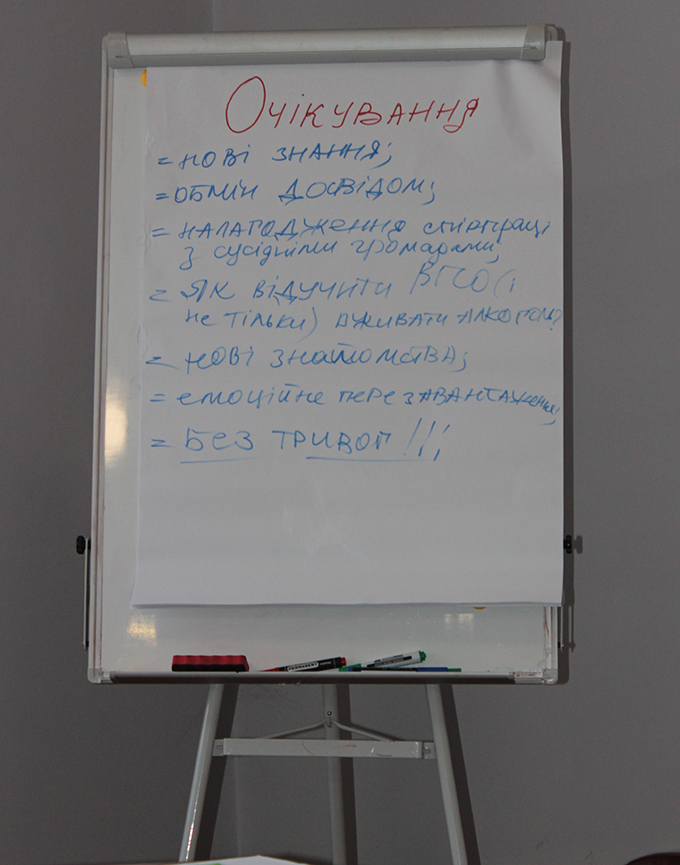 Очікування
= нові знання;
= обмін досвідом;
= налагодження співпраці
з сусідніми громадами;
= як відучити ВПО (і
не тільки) вживати алкоголь?
= нові знайомства;
= емоційне перезавантаження;
= Без тривог!!!;
PERMANENT